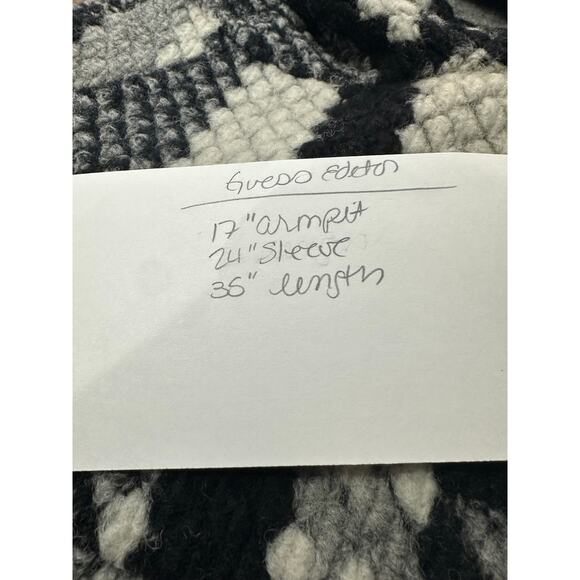 Guess Editor
17" armpit
24" sleeve
35" length